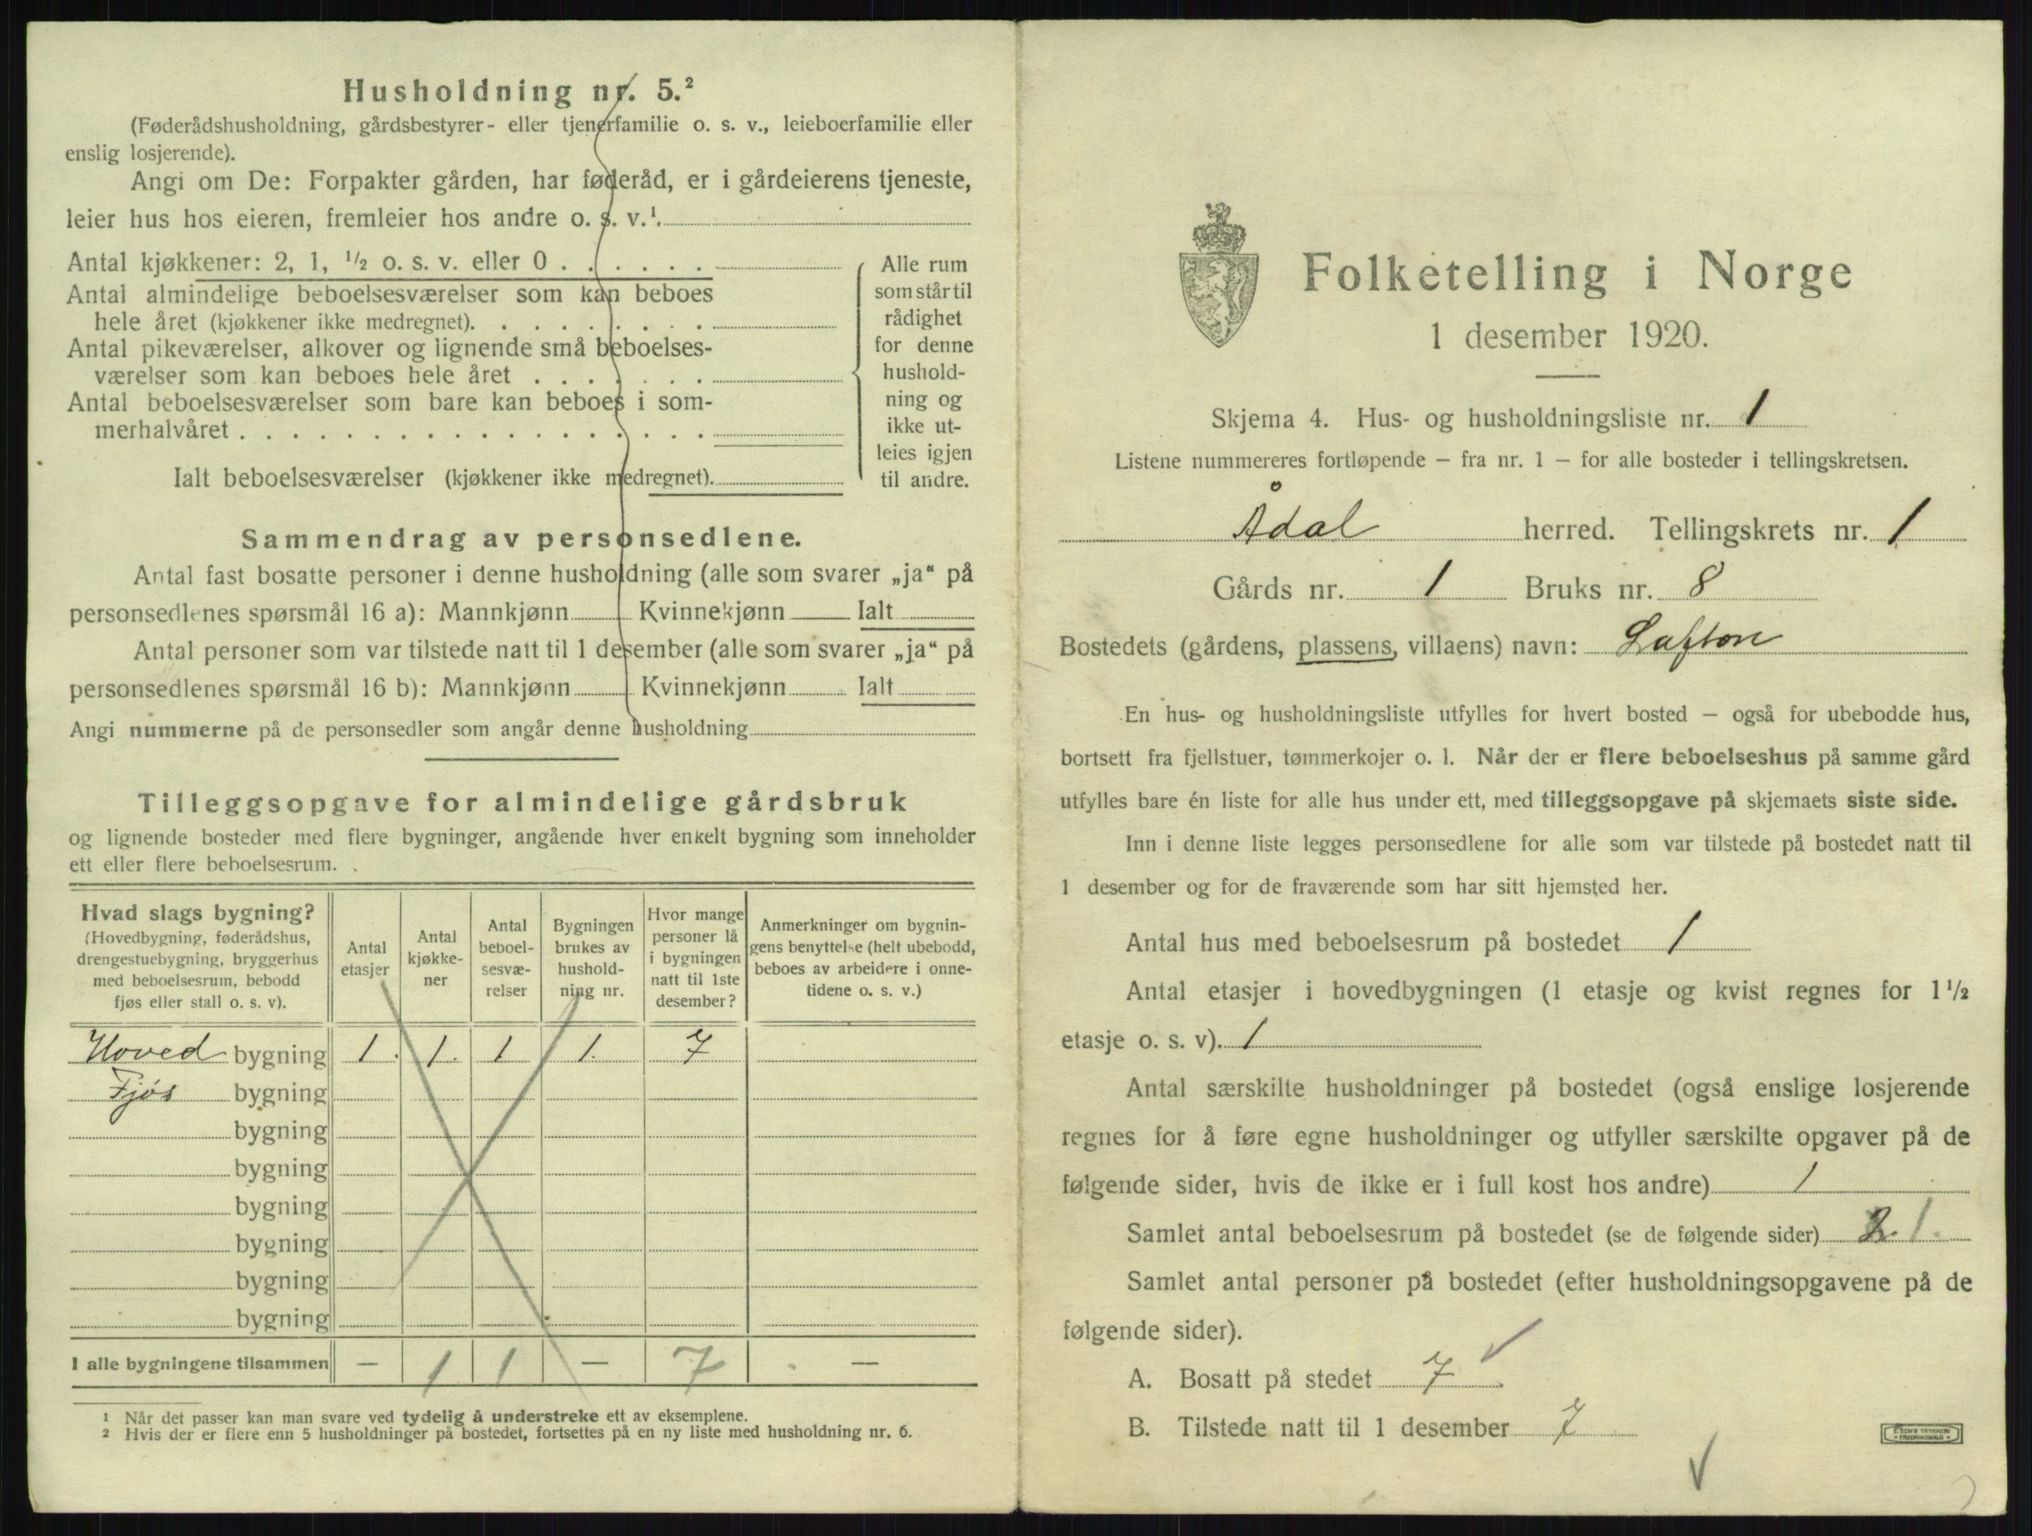 Husholdning nr. 5.²
(Føderådshusholdning, gårdsbestyrer- eller tjenerfamilie o. s. v., leieboerfamilie eller
enslig losjerende).
Angi om De: Forpakter gården, har føderåd, er i gårdeierens tjeneste,
leier hus hos eieren, fremleier hos andre o. s. v.¹.
Antal kjøkkener: 2, 1, ½ o. s. v. eller 0 . . . . . .
Antal almindelige beboelsesværelser som kan beboes
hele året (kjøkkener ikke medregnet). . . . . . . . .
Antal pikeværelser, alkover og lignende små beboelses-
værelser som kan beboes hele året . . . . . . .
Antal beboelsesværelser som bare kan beboes i som-
merhalvåret . . . . . . . . . . . . . . . . . .
Ialt beboelsesværelser (kjøkkener ikke medregnet).
Alle rum
som står til
rådighet
for denne
hushold-
ning og
ikke ut-
leies igjen
til andre.
Sammendrag av personsedlene.
Antal fast bosatte personer i denne husholdning (alle som svarer „ja“ på
personsedlenes spørsmål 16 a): Mannkjønn Kvinnekjønn Ialt
Antal personer som var tilstede natt til 1 desember (alle som svarer „ja“ på
personsedlenes spørsmål 16 b): Mannkjønn Kvinnekjønn Ialt
Angi nummerne på de personsedler som angår denne husholdning
Tilleggsopgave for almindelige gårdsbruk
og lignende bosteder med flere bygninger, angående hver enkelt bygning som inneholder
ett eller flere beboelsesrum.
Hvad slags bygning?
(Hovedbygning, føderådshus,
drengestuebygning, bryggerhus
med beboelsesrum, bebodd
fjøs eller stall o. s. v).
Antal
etasjer
Antal
kjøkke-
ner
Antal
beboel-
sesvæ-
relser
Bygningen
brukes av
hushold-
ning nr.
Hvor mange
personer lå
i bygningen
natt til 1ste
desember?
Anmerkninger om bygnin-
gens benyttelse (helt ubebodd,
beboes av arbeidere i onne-
tidene o. s. v.)
Hoved bygning 1. 1. 1 1. 7
Fjøs bygning
bygning
bygning
bygning
bygning
bygning
bygning
I alle bygningene tilsammen — 1 1 — 7 —
¹ Når det passer kan man svare ved tydelig å understreke ett av eksemplene.
² Hvis der er flere enn 5 husholdninger på bostedet, fortsettes på en ny liste med husholdning nr. 6.
Folketelling i Norge
1 desember 1920.
Skjema 4. Hus- og husholdningsliste nr. 1
Listene nummereres fortløpende – fra nr. 1 – for alle bosteder i tellingskretsen.
Ådal herred. Tellingskrets nr. 1
Gårds nr. 1 Bruks nr. 8
Bostedets (gårdens, plassens, villaens) navn: Lafton
En hus- og husholdningsliste utfylles for hvert bosted – også for ubebodde hus,
bortsett fra fjellstuer, tømmerkojer o. l. Når der er flere beboelseshus på samme gård
utfylles bare én liste for alle hus under ett, med tilleggsopgave på skjemaets siste side.
Inn i denne liste legges personsedlene for alle som var tilstede på bostedet natt til
1 desember og for de fraværende som har sitt hjemsted her.
Antal hus med beboelsesrum på bostedet 1
Antal etasjer i hovedbygningen (1 etasje og kvist regnes for 1½
etasje o. s. v). 1
Antal særskilte husholdninger på bostedet (også enslige losjerende
regnes for å føre egne husholdninger og utfyller særskilte opgaver på de
følgende sider, hvis de ikke er i full kost hos andre) 1
Samlet antal beboelsesrum på bostedet (se de følgende sider) 2. 1.
Samlet antal personer på bostedet (efter husholdningsopgavene på de
følgende sider).
A. Bosatt på stedet 7
B. Tilstede natt til 1 desember 7